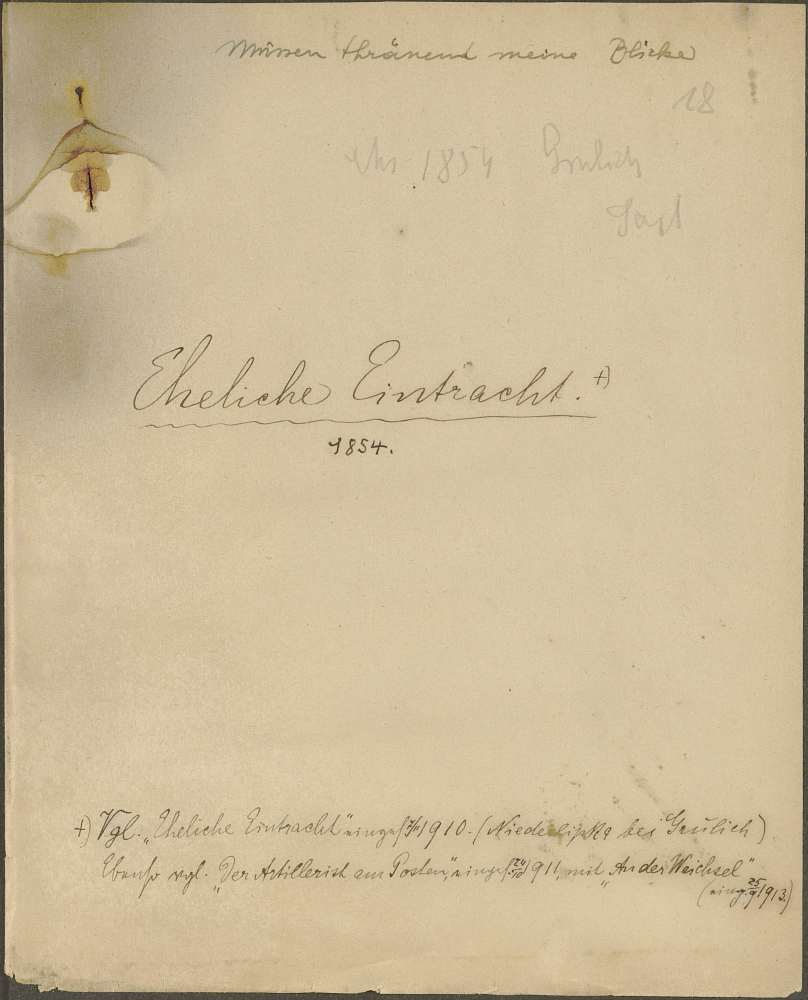 Müssen thränend meine Blicke
18
1854 Grulich
Eheliche Eintracht. +)
1854.
+) Vgl. „Eheliche Eintracht" 1910. (Niederlipka bei Grulich)
Ebenso vgl. „Der Artillerist am Posten", 1911, mit „An der Weichsel"
1913.)